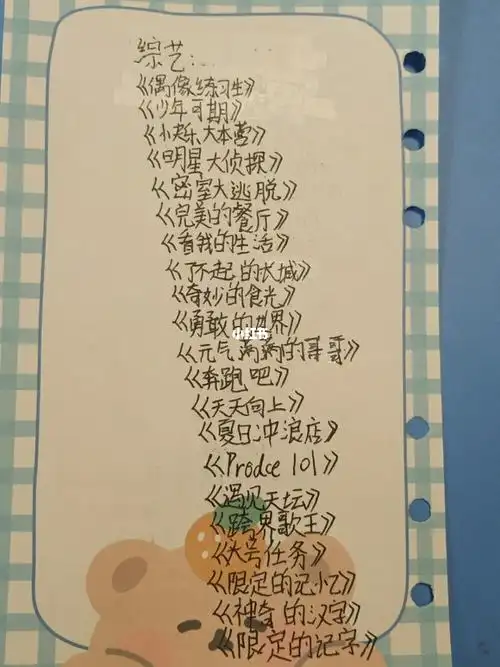 综艺:
《偶像练习生》
《少年可期》
《快乐大本营》
《明星大侦探》
《密室大逃脱》
《完美的餐厅》
《看我的生活》
《了不起的长城》
《奇妙的食光》
《勇敢的世界》
小红书
《元气满满的哥哥》
《奔跑吧》
《天天向上》
《夏日冲浪店》
《Prodce 101》
《遇见天坛》
《跨界歌王》
《大号任务》
《限定的记忆》
《神奇的汉字》
《限定的记字》